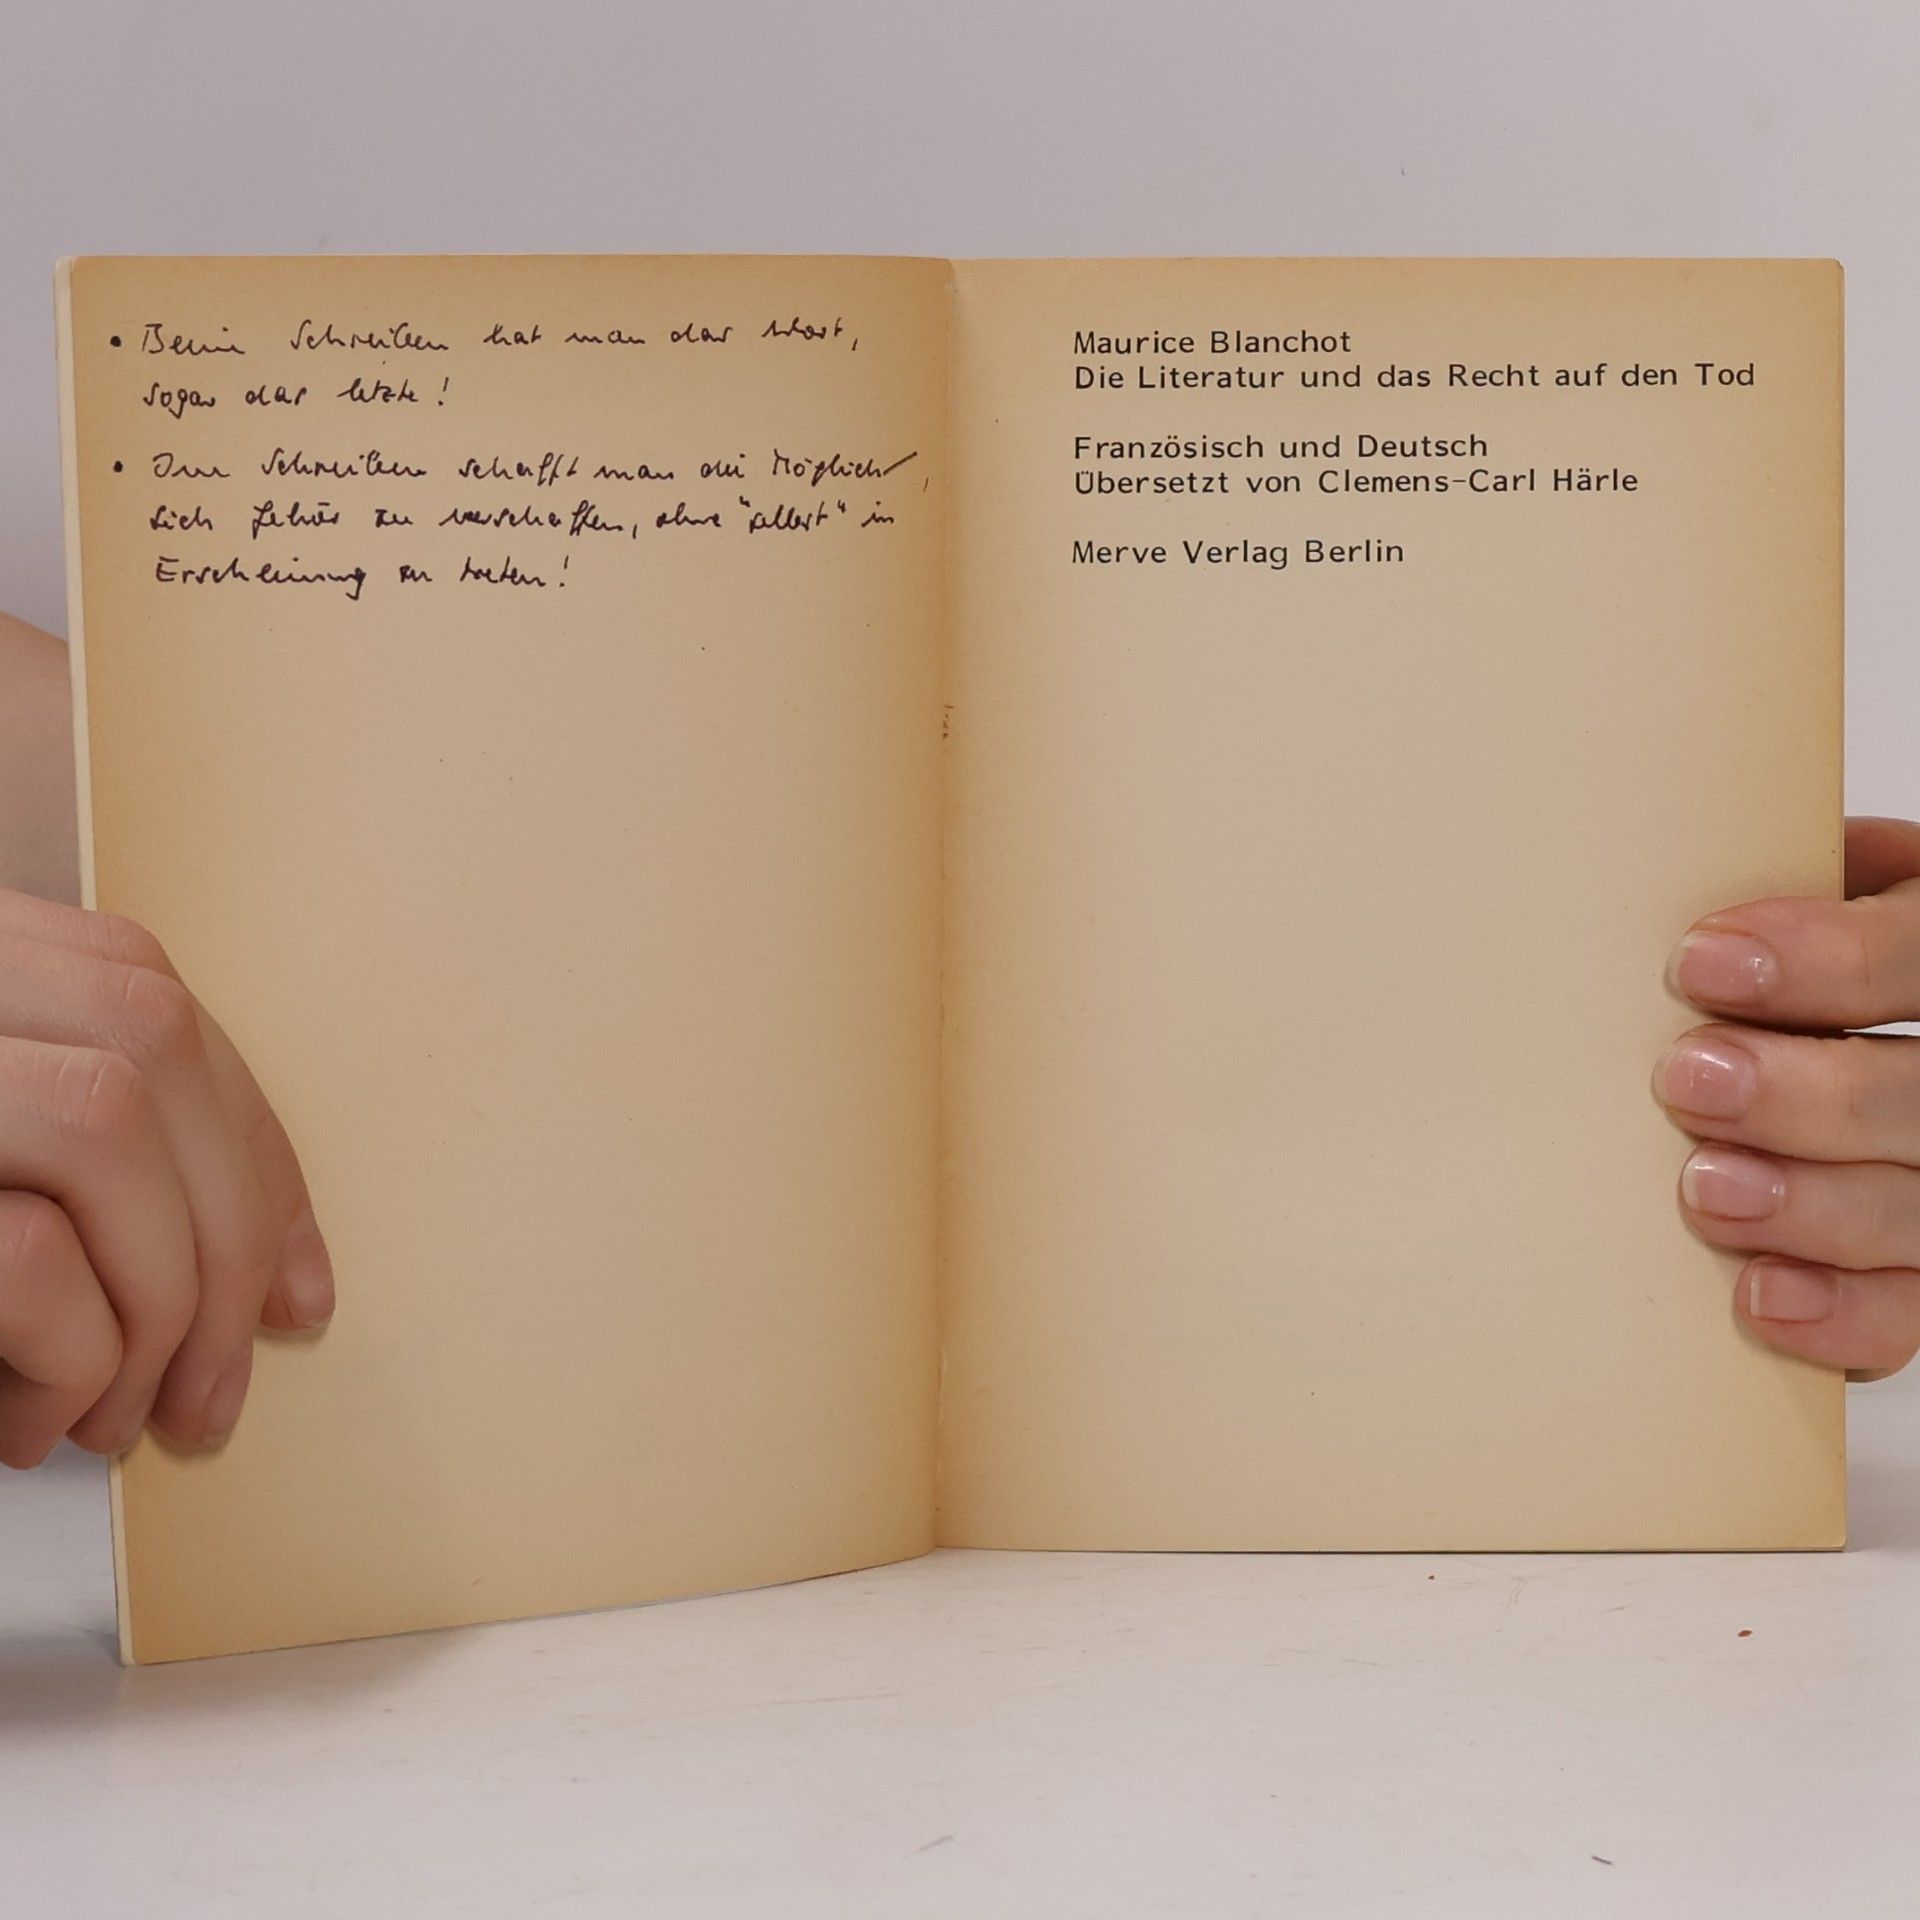 • Beim Schreiben hat man das Wort,
sogar das letzte!
• Im Schreiben schafft man die Möglichk,
sich Gehör zu verschaffen, ohne "selbst" in
Erscheinung zu treten!
Maurice Blanchot
Die Literatur und das Recht auf den Tod
Französisch und Deutsch
Übersetzt von Clemens-Carl Härle
Merve Verlag Berlin